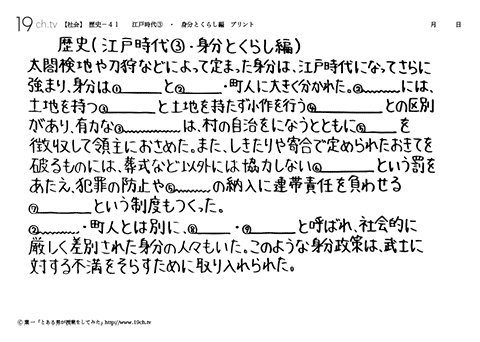 19ch.tv 【社会】 歴史－41 江戸時代③ ・ 身分とくらし編 プリント 月 日
歴史(江戸時代③・身分とくらし編)
太閤検地や刀狩などによって定まった身分は、江戸時代になってさらに
強まり、身分は①______と②______・町人に大きく分かれた。②______には、
土地を持つ③______と土地を持たず小作を行う④______との区別
があり、有力な③______は、村の自治をになうとともに⑤______を
徴収して領主におさめた。また、しきたりや寄合で定められたおきてを
破るものには、葬式など以外には協力しない⑥______という罰を
あたえ、犯罪の防止や⑤______の納入に連帯責任を負わせる
⑦______という制度もつくった。
②______・町人とは別に、⑧______・⑨______と呼ばれ、社会的に
厳しく差別された身分の人々もいた。このような身分政策は、武士に
対する不満をそらすために取り入れられた。
© 葉一「とある男が授業をしてみた」http://www.19ch.tv